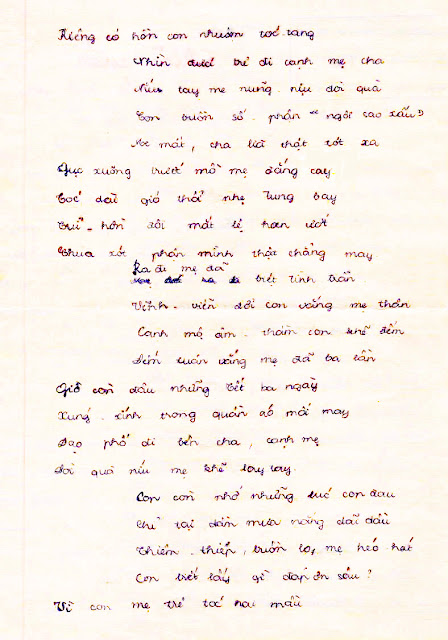 Riêng có hồn con nhuốm tóc tang
Nhìn đươc trẻ đi cạnh mẹ cha
Níu tay mẹ nũng nịu đòi quà
Con buồn số phận "ngôi sao xấu"
Mẹ mất, cha lìa thật xót xa
Gục xuống trước mồ mẹ đắng cay
Tóc dài gió thổi nhẹ tung bay
Tủi - hờn sôi mắt lệ hoen ướt
Chua xót phận mình thật chẳng may
Ra đi mẹ đã biết tình trần
Vĩnh - viễn đời con vắng mẹ thân
Cạnh mộ âm - thầm con khẽ đếm
Đếm xuân vắng mẹ đã ba lần
Giờ còn đâu những tết ba ngày
Xúng - xính trong quần áo mới may
Dạo phố đi bên cha, cạnh mẹ
Đòi quà níu mẹ khẽ lay tay.
Con còn nhớ những lúc con đau
Chỉ tại dầm mưa nắng dãi dầu
Thiêm - thiếp, buồn lo, mẹ héo hắt
Con biết lấy gì đáp ơn sâu?
Vì con mẹ trẻ tóc hai mầu